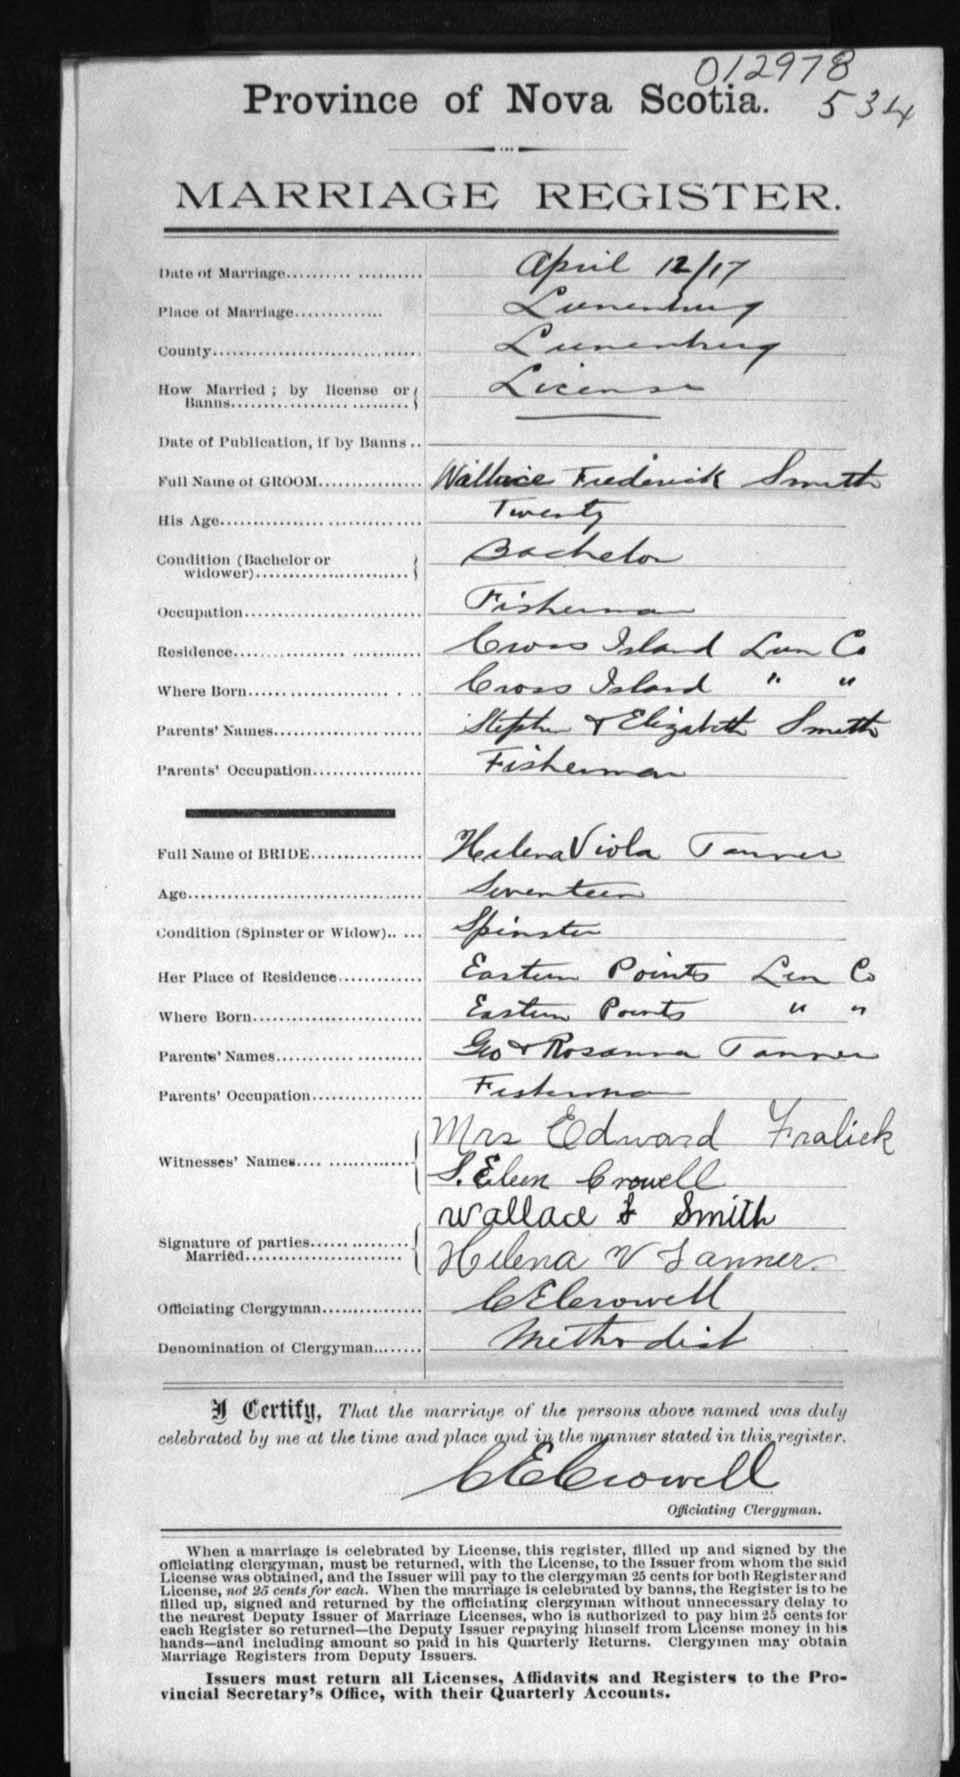 012978
Province of Nova Scotia.
534
MARRIAGE REGISTER.
Date of Marriage.................... April 12/17
Place of Marriage.............. Lunenburg
County................................ Lunenburg
How Married ; by license or
Banns.......................... License
Date of Publication, if by Banns ..
Full Name of GROOM................ Wallace Frederick Smith
His Age............................... Twenty
Condition (Bachelor or
widower)......................... Bachelor
Occupation........................... Fisherman
Residence............................ Cross Island Lun Co
Where Born......................... Cross Island " "
Parents' Names...................... Stephen & Elizabeth Smith
Parents' Occupation................. Fisherman
Full Name of BRIDE................. Helena Viola Tanner
Age.................................... Seventeen
Condition (Spinster or Widow).. ... Spinster
Her Place of Residence............. Eastern Points Lun Co
Where Born.......................... Eastern Points " "
Parents' Names...................... Geo & Rosanna Tanner
Parents' Occupation................. Fisherman
Mrs Edward Fralick
Witnesses' Names.... ..............
S. Eleen Crowell
Wallace F Smith
Signature of parties...............
Married........................
Helena V Tanner.
Officiating Clergyman............... C E Crowell
Denomination of Clergyman........ Methodist
I Certify, That the marriage of the persons above named was duly
celebrated by me at the time and place and in the manner stated in this register.
C E Crowell
Officiating Clergyman.
When a marriage is celebrated by License, this register, filled up and signed by the
officiating clergyman, must be returned, with the License, to the Issuer from whom the said
License was obtained, and the Issuer will pay to the clergyman 25 cents for both Register and
License, not 25 cents for each. When the marriage is celebrated by banns, the Register is to be
filled up, signed and returned by the officiating clergyman without unnecessary delay to
the nearest Deputy Issuer of Marriage Licenses, who is authorized to pay him 25 cents for
each Register so returned—the Deputy Issuer repaying himself from License money in his
hands—and including amount so paid in his Quarterly Returns. Clergymen may obtain
Marriage Registers from Deputy Issuers.
Issuers must return all Licenses, Affidavits and Registers to the Pro-
vincial Secretary's Office, with their Quarterly Accounts.